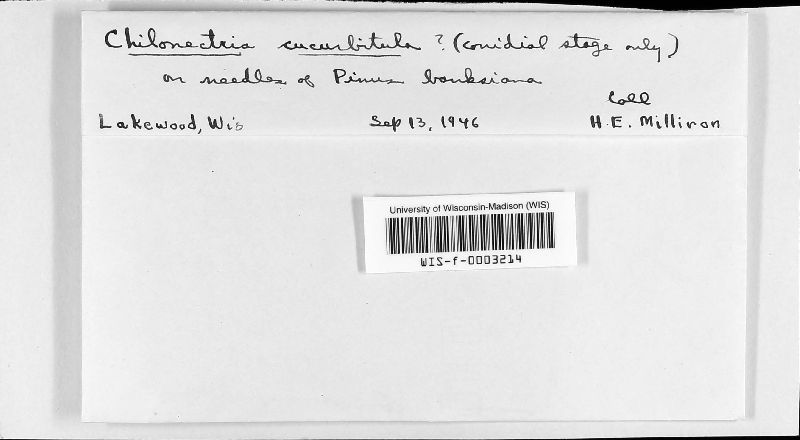 Chilonectria cucurbitula ? (conidial stage only)
on needles of Pinus banksiana
Coll
Lakewood, Wis Sep 13, 1946 H.E. Milliron
University of Wisconsin-Madison (WIS)
WIS-f-0003214